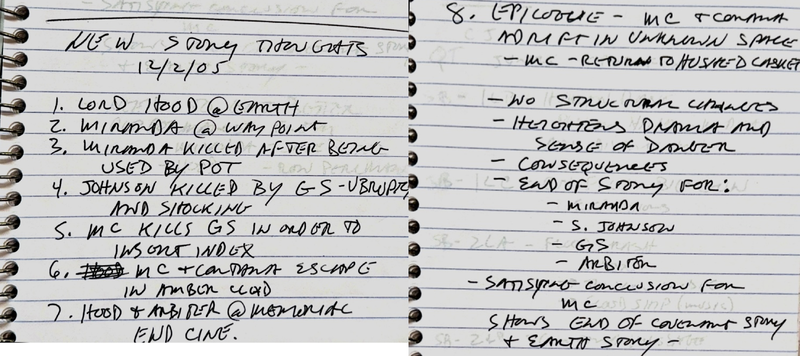 NEW STORY THOUGHTS
12/2/05
1. LORD HOOD @ EARTH
2. MIRANDA @ WAY POINT
3. MIRANDA KILLED AFTER BEING
USED BY POT
4. JOHNSON KILLED BY GS -
AND SHOCKING
5. MC KILLS GS IN ORDER TO
INSERT INDEX
6. MC + CORTANA ESCAPE
IN AMBER CLAD
7. HOOD + ARBITER @ MEMORIAL
END CINE.
8. EPILOGUE - MC + CORTANA
ADRIFT IN UNKNOWN SPACE
- MC - RETURN TO HUSHED CASKET
- NO STRUCTURAL CHANGES
- HEIGHTENS DRAMA AND
SENSE OF DANGER
- CONSEQUENCES
- END OF STORY FOR:
- MIRANDA
- S. JOHNSON
- GS
- ARBITER
- SATISFYING CONCLUSION FOR
MC
SHOWS END OF COVENANT STORY
+ EARTH STORY -